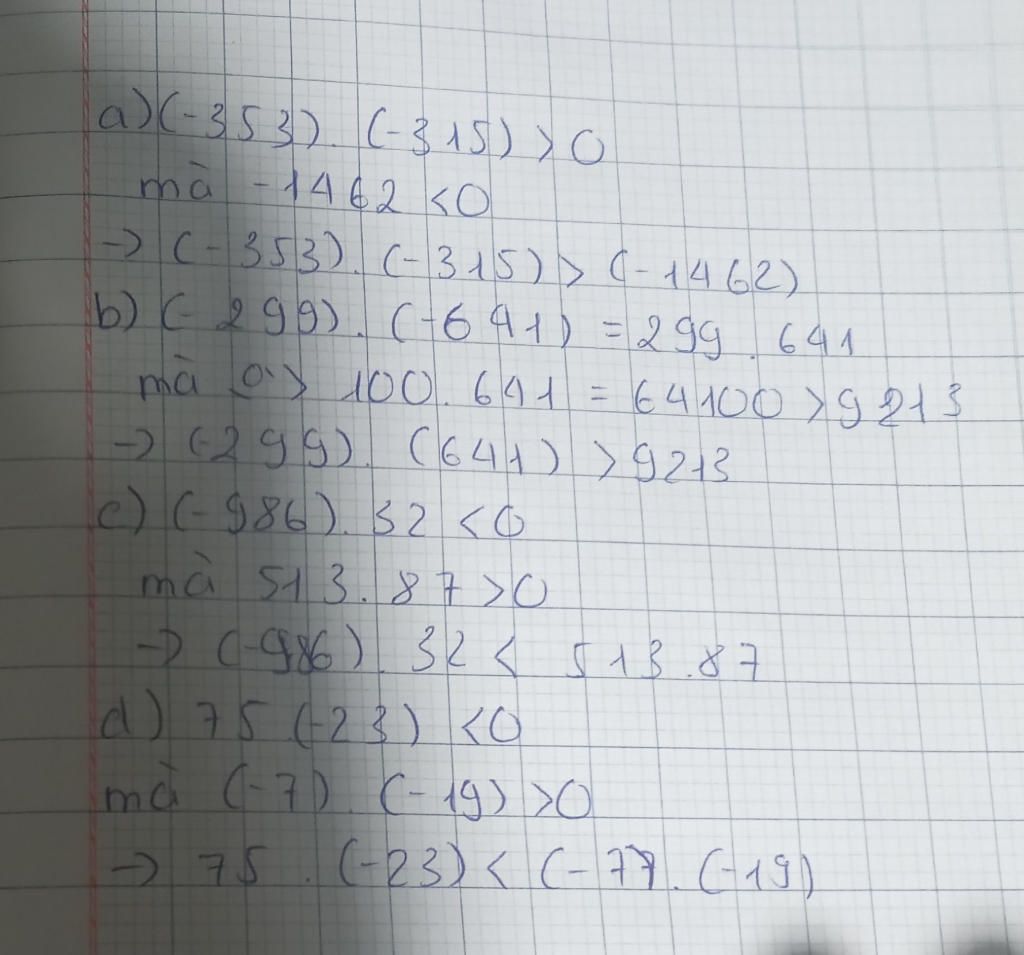 a) (-353). (-315) > 0
mà -1462 < 0
-> (-353). (-315) > (-1462)
b) (-299). (-641) = 299. 641
mà > 100. 641 = 64100 > 9213
-> (-299). (641) > 9213
c) (-986). 32 < 0
mà 513. 87 > 0
-> (-986). 32 < 513. 87
d) 75 (-23) < 0
mà (-7). (-19) > 0
-> 75. (-23) < (-77. (-19)